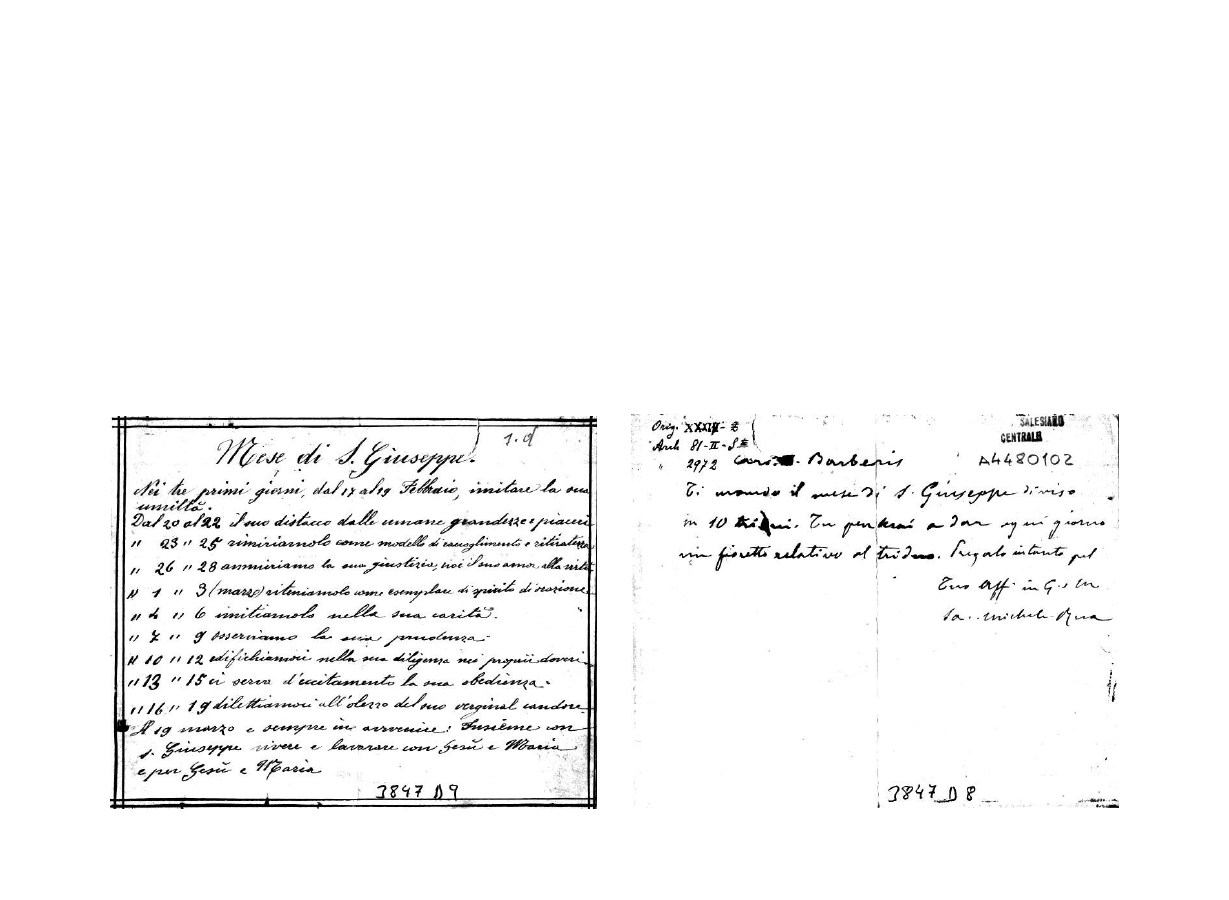 1. d
Mese di S. Giuseppe.
Nei tre primi giorni, dal 17 al 19 Febbraio, imitare la sua
umiltà.
Dal 20 al 22 il suo distacco dalle umane grandezze e piaceri
" 23 " 25 rimiriamolo come modello di raccoglimento e ritiratezza
" 26 " 28 ammiriamo la sua giustizia, il suo amor alla virtù
" 1 " 3 (marzo) riteniamolo come esemplare di spirito di orazione
" 4 " 6 imitiamolo nella sua carità.
" 7 " 9 osserviamo la sua prudenza.
" 10 " 12 edifichiamoci nella sua diligenza nei proprii doveri
" 13 " 15 ci serva d'eccitamento la sua obedienza.
" 16 " 19 dilettiamoci all'olezzo del suo verginal candore.
Il 19 marzo e sempre in avvenire: Insieme con
S. Giuseppe vivere e lavorare con Gesù e Maria
e per Gesù e Maria
3847 D9
Orig.
Arch. 81-II-S
" 2972
SALESIANO
CENTRALE
A4480102
Caro Barberis
Ti mando il mese di S. Giuseppe diviso
in 10 tridui. Tu penserai a dar ogni giorno
un fioretto relativo al triduo. Prega intanto pel
Tuo aff in G. e M.
Sac. Michele Rua
3847 D 8